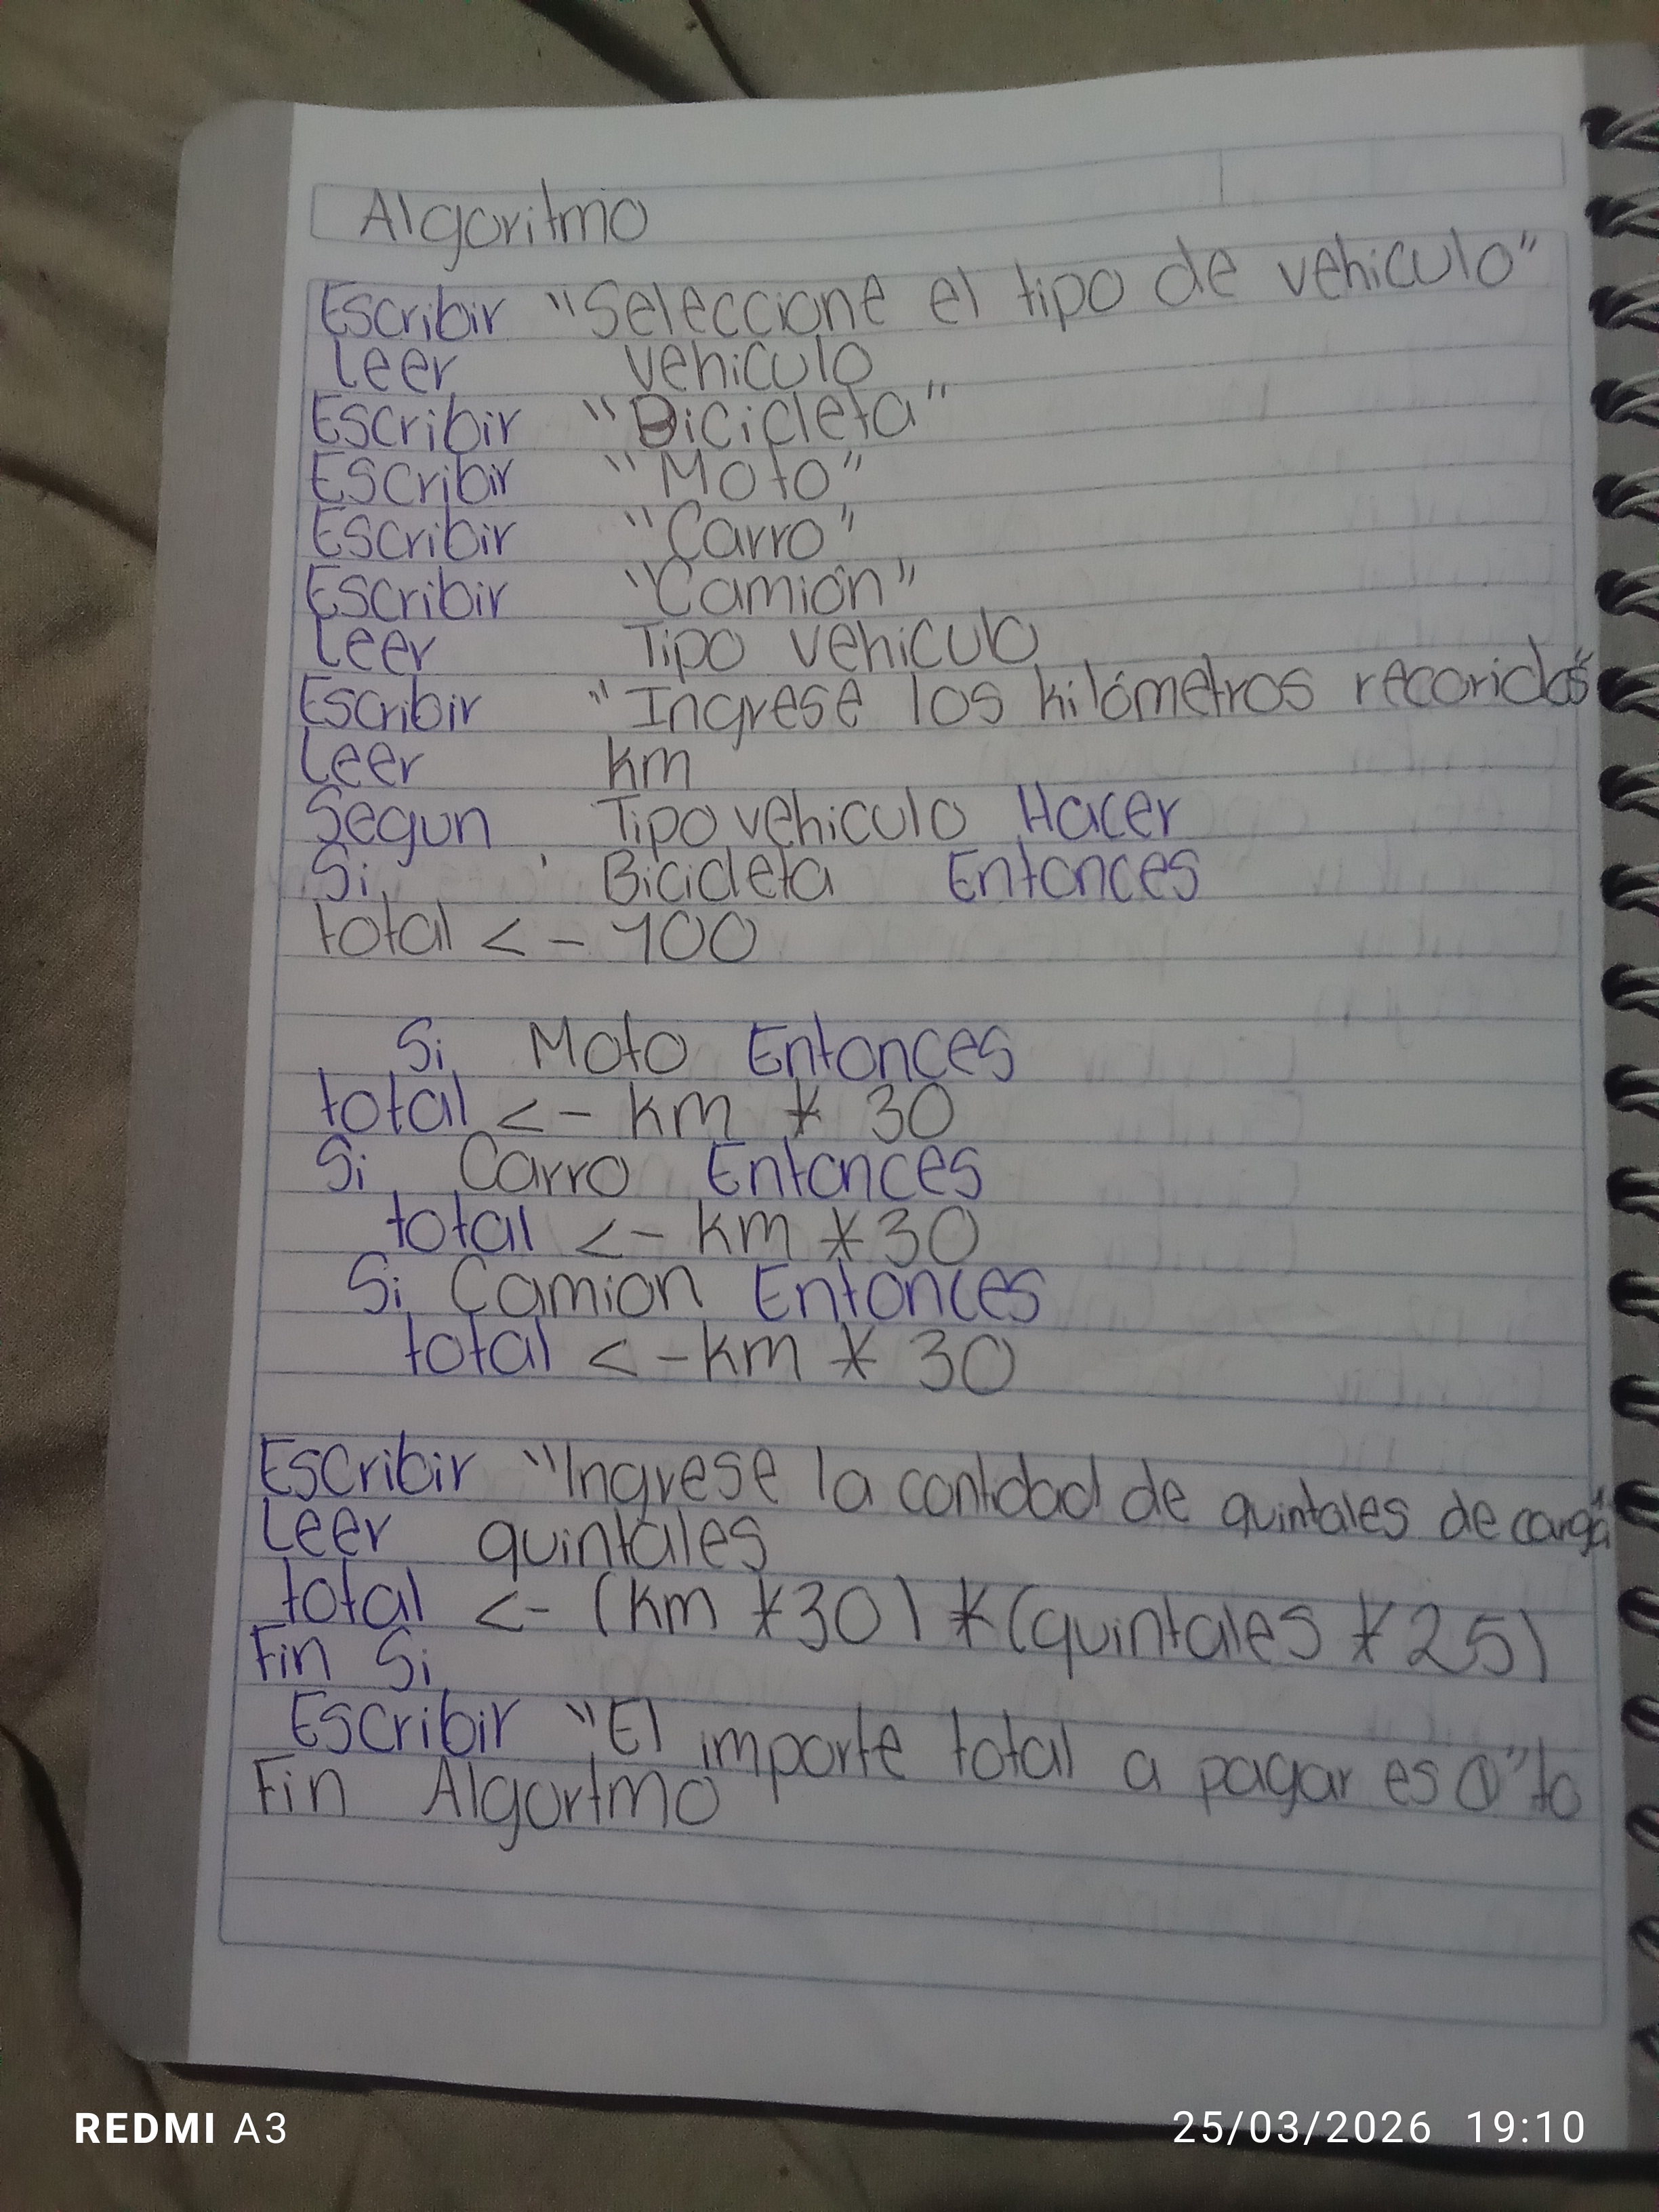 Algoritmo
Escribir "Seleccione el tipo de vehiculo"
Leer vehiculo
Escribir "Bicicleta"
Escribir "Moto"
Escribir "Carro"
Escribir "Camión"
Leer Tipo vehiculo
Escribir "Ingrese los kilómetros recoridos"
Leer km
Segun Tipo vehiculo Hacer
Si Bicicleta Entonces
total <- 100
Si Moto Entonces
total <- km * 30
Si Carro Entonces
total <- km * 30
Si Camion Entonces
total <- km * 30
Escribir "Ingrese la cantidad de quintales de carga"
Leer quintales
total <- (km * 30) * (quintales * 25)
Fin Si
Escribir "El importe total a pagar es " to
Fin Algortmo
REDMI A3
25/03/2026 19:10